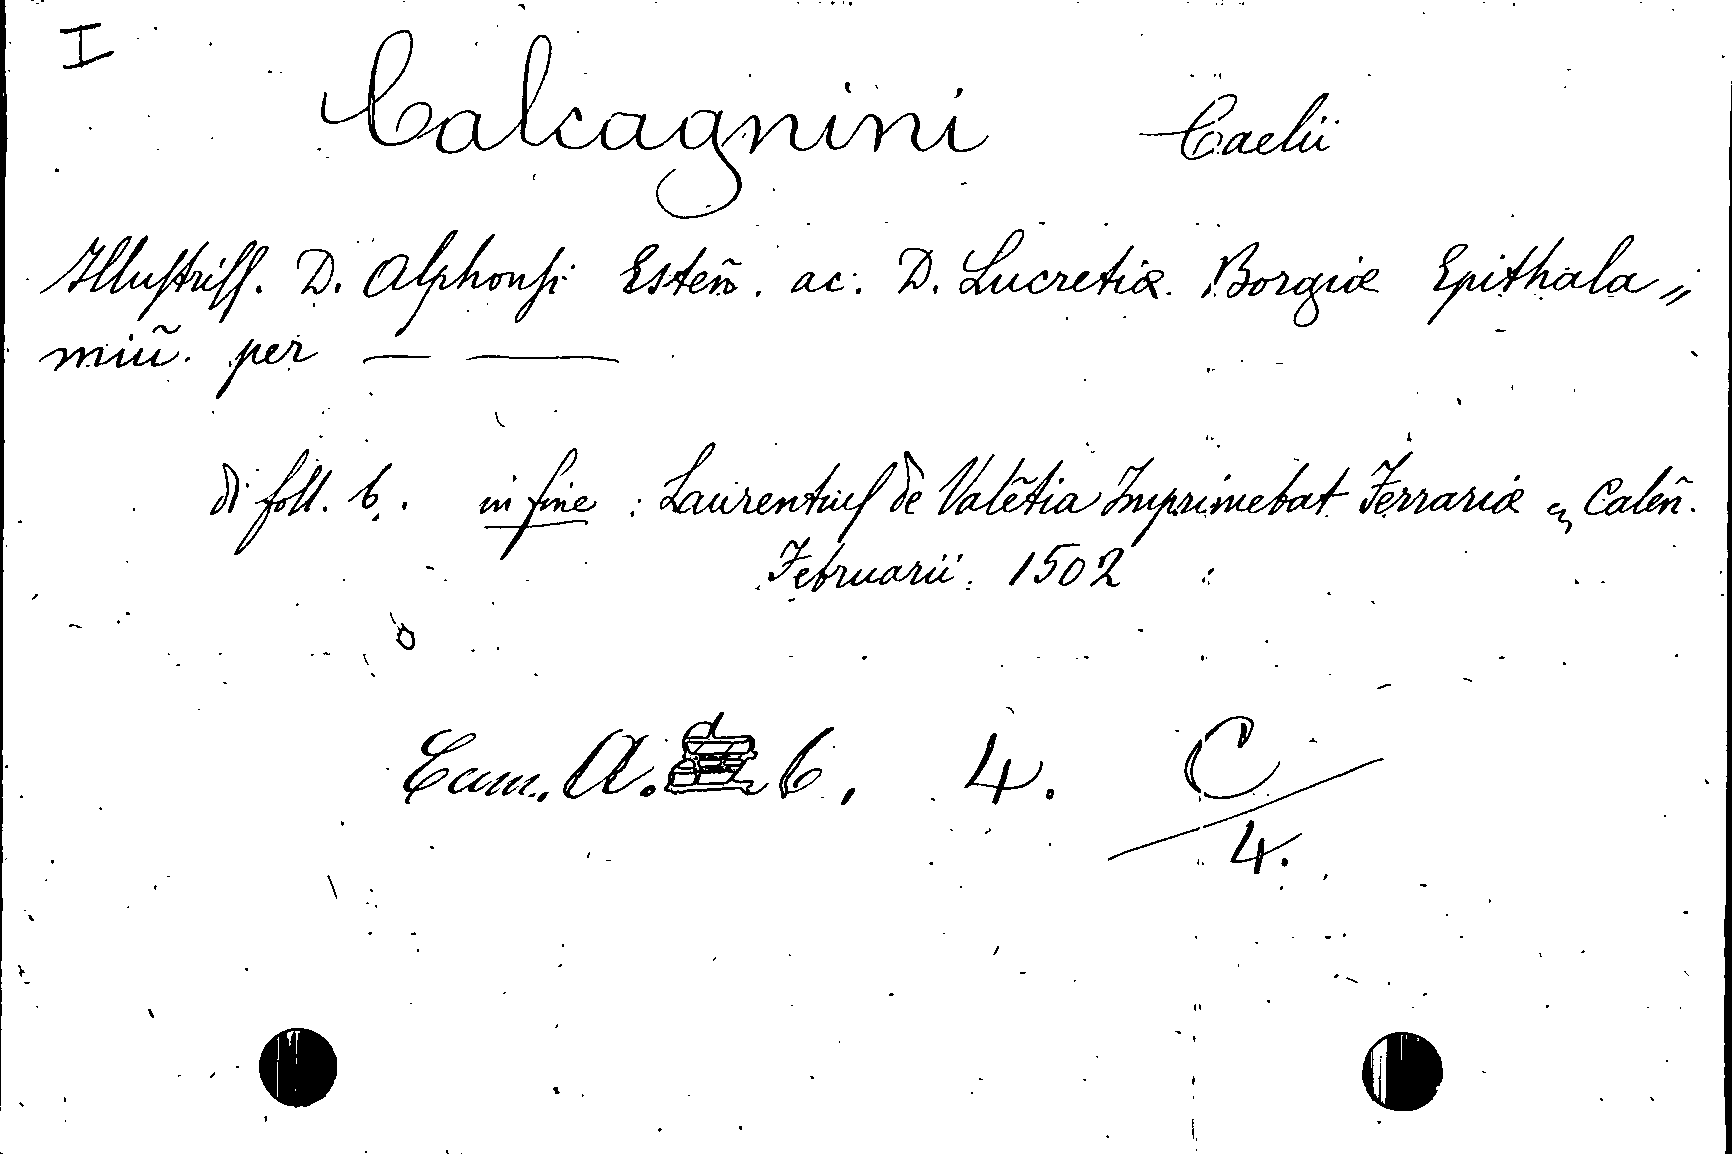 I
Calcagnini Caelii
Illustriss. D. Alphonsi Esteñ. ac. D. Lucretiæ Borgiæ Epithala„
miũ. per — ——
di foll. 6. in fine: Laurentius de Valẽtia Imprimebat Ferrariæ Caleñ.
Februarii. 1502
Cam. A. 6, 4. C
4.